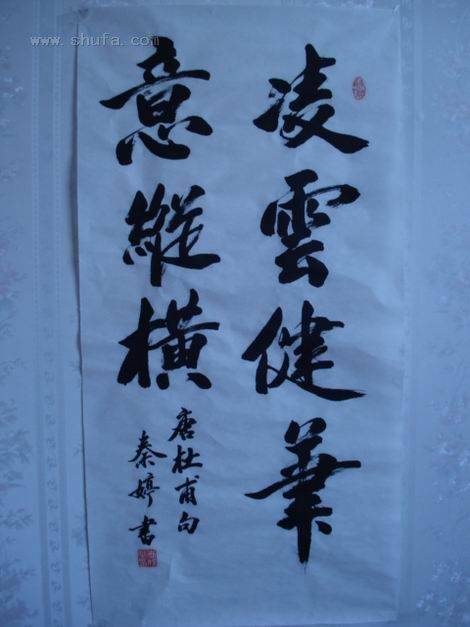 凌雲健筆
意縱横
唐杜甫句
秦婷书
www.shufa.com